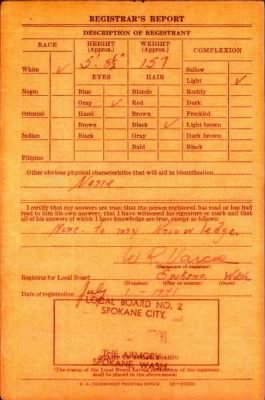 REGISTRAR'S REPORT
DESCRIPTION OF REGISTRANT
RACE HEIGHT (Approx.) WEIGHT (Approx.) COMPLEXION
White ✓ 5' 8½" 157 Sallow
EYES HAIR Light ✓
Negro Blue Blonde Ruddy
Gray ✓ Red Dark
Oriental Hazel Brown Freckled
Brown Black ✓ Light brown
Indian Black Gray Dark brown
Bald Black
Filipino
Other obvious physical characteristics that will aid in identification
None
I certify that my answers are true; that the person registered has read or has had
read to him his own answers; that I have witnessed his signature or mark and that
all of his answers of which I have knowledge are true, except as follows:
None to my knowledge.
W R
(Signature of registrar)
Registrar for Local Board Spokane Wash
(Number) (City or county) (State)
Date of registration July 1 1941
LOCAL BOARD NO. 2
SPOKANE CITY,
THE ARMORY
SPOKANE WASH
(The stamp of the Local Board having jurisdiction of the registrant
shall be placed in the above space)
U. S. GOVERNMENT PRINTING OFFICE